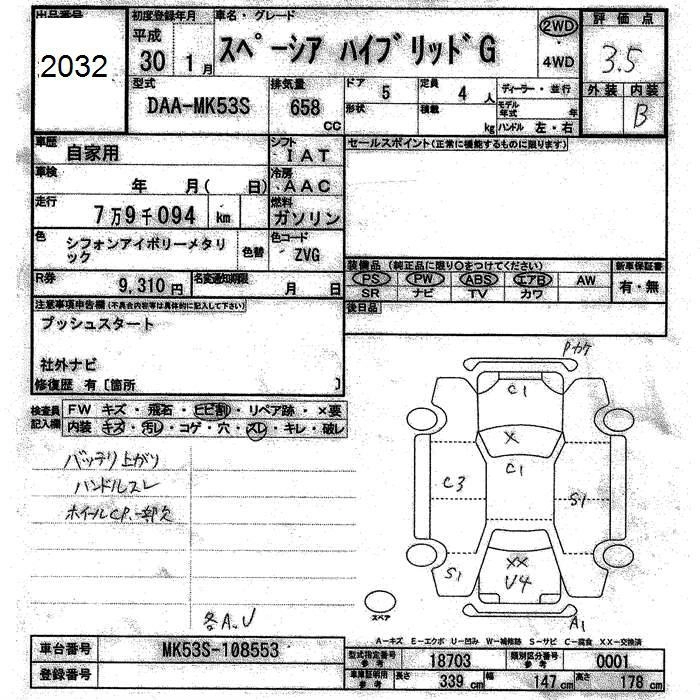 出品番号
2032
初度登録年月
平成
30 1月
車名・グレード
スペーシア ハイブリッドG
2WD
4WD
評価点
3.5
外装 内装
B
型式
DAA-MK53S
排気量
658
CC
ドア
5
形状
定員
4 人
積載
kg
ディーラー・並行
モデル年式 年
ハンドル 左・右
車歴
自家用
シフト
IAT
セールスポイント(正常に機能するものに限ります)
車検
年 月( 日)
冷房
AAC
走行
7万9千094 km
燃料
ガソリン
色
シフォンアイボリーメタリック
色替
色コード
ZVG
R券
9,310円
名変通知期限
月 日
装備品(純正品に限り○をつけてください)
PS PW ABS エアB AW
SR ナビ TV カワ
新車保証書
有・無
後日品
注意事項申告欄(不具合内容等は具体的に記入して下さい)
プッシュスタート
社外ナビ
修復歴 有〔箇所 〕
検査員記入欄
FW キズ・飛石・ヒビ割・リペア跡・×要
内装 キズ・汚レ・コゲ・穴・スレ・キレ・破レ
バッテリ上がり
ハンドルスレ
ホイールCP、一部欠
各A.U
Pカケ
C1
X
C1
C3
S1
S1
XX
U4
A1
スペア
A-キズ E-エクボ U-凹み W-補修跡 S-サビ C-腐食 XX-交換済
車台番号
MK53S-108553
登録番号
型式指定番号 参考
18703
類別区分番号 参考
0001
車庫証明用 参考
長さ 339 cm
幅 147 cm
高さ 178 cm